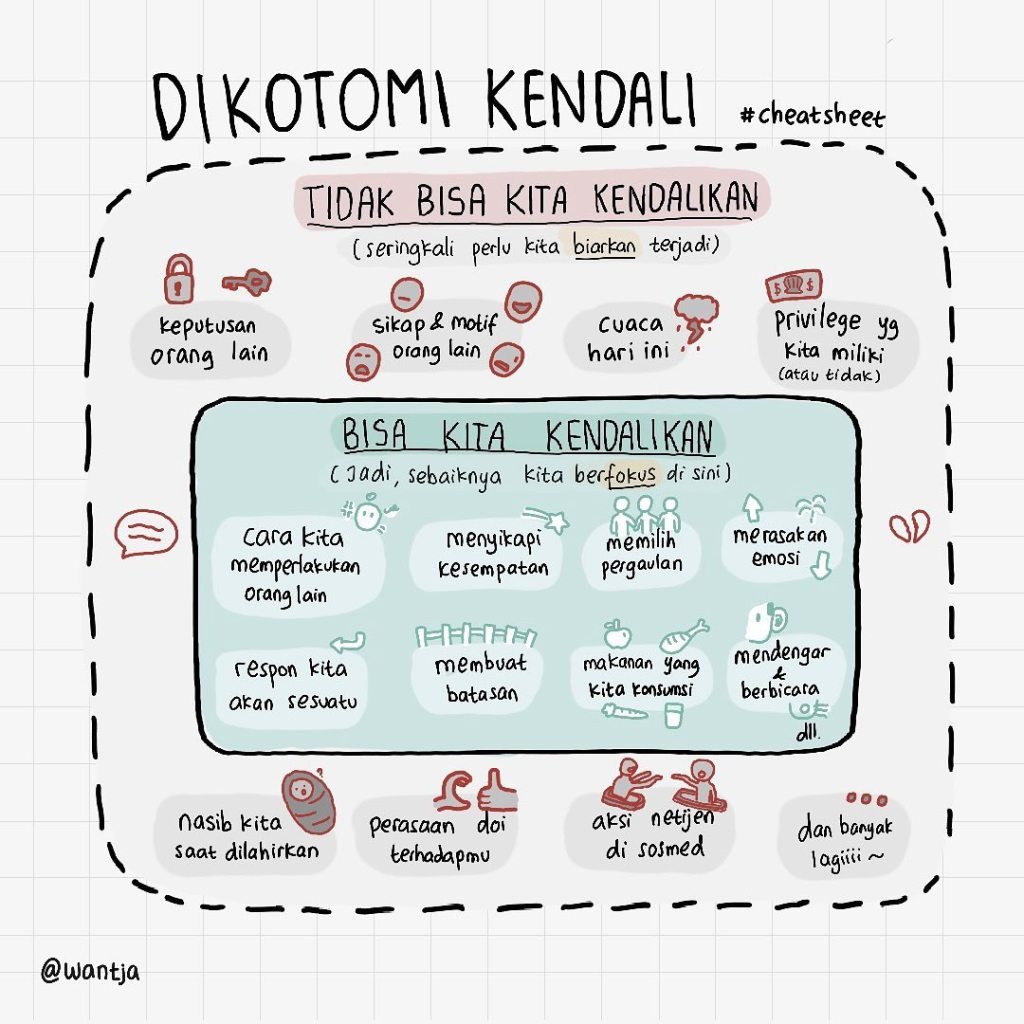 DIKOTOMI KENDALI
#cheatsheet
TIDAK BISA KITA KENDALIKAN
(seringkali perlu kita biarkan terjadi)
keputusan
orang lain
sikap & motif
orang lain
cuaca
hari ini
privilege yg
kita miliki
(atau tidak)
BISA KITA KENDALIKAN
(Jadi, sebaiknya kita berfokus di sini)
cara kita
memperlakukan
orang lain
menyikapi
kesempatan
memilih
pergaulan
merasakan
emosi
respon kita
akan sesuatu
membuat
batasan
makanan yang
kita konsumsi
mendengar
&
berbicara
dll.
nasib kita
saat dilahirkan
perasaan doi
terhadapmu
aksi netijen
di sosmed
dan banyak
lagiiii ~
@wantja